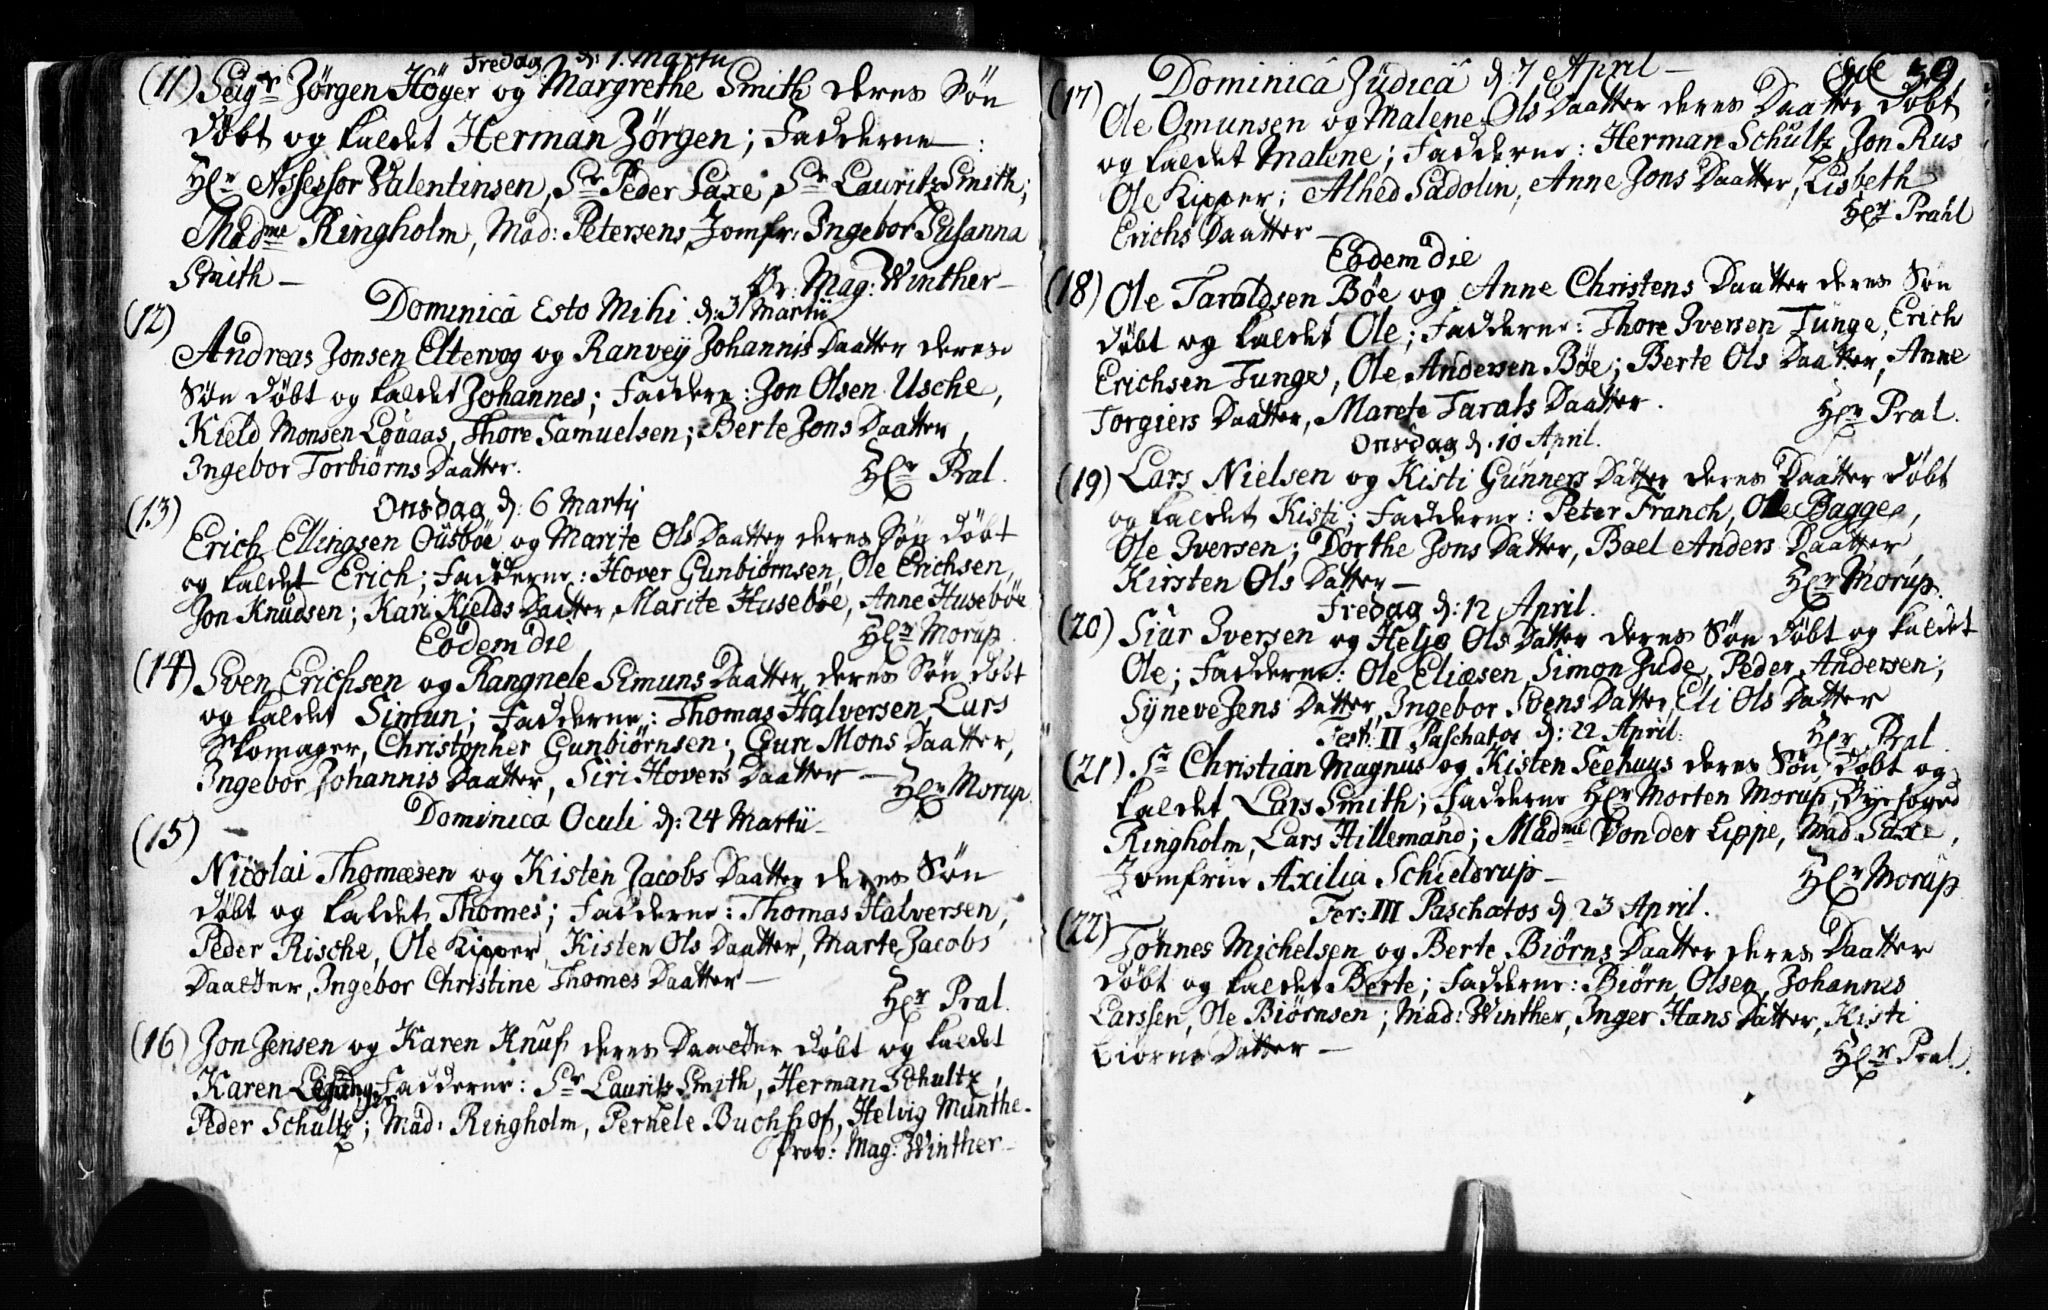 Fredag d: 1. Martii
(11) Seigr Jørgen Høyer og Margrethe Smith deres Søn
døbt og kaldet Herman Jørgen; Fadderne:
Hr Assessor Valentinsen, Sr Peder Saxe, Sr Lauritz Smith;
Madme Ringholm, Mad: Petersens, Jomfr: Ingebor Susanna
Smith —
Pr: Mag: Winther —
Dominica Esto Mihi d: 3 Martii
(12)
Andreas Jonsen Eltervog og Ranvey Johannis Daatter deres
Søn døbt og kaldet Johannes; Faddere: Jon Olsen Usche,
Kield Monsen Louaas, Thore Samuelsen; Berte Jons Daatter,
Ingebor Torbiørns Daatter.
Hr Pral.
Onsdag d: 6 Martij
(13)
Erich Ellingsen Ousbøe og Marite Ols Daatter deres Søn døbt
og kaldet Erich; Fadderne: Hover Gunbiørnsen, Ole Erichsen,
Jon Knudsen; Kari Kields Daatter, Marite Husebøe, Anne Husebøe
Hr Morup.
Eodem die
(14) Sven Erichsen og Rangnele Simuns Daatter deres Søn døbt
og kaldet Simun; Fadderne: Thomas Halversen, Lars
Skomager, Christopher Gunbiørnsen; Guri Mons Daatter,
Ingebor Johannis Daatter, Siri Hovers Daatter —
Hr Morup.
Dominica Oculi d: 24 Martii
(15)
Nicolai Thomæsen og Kisten Jacobs Daatter deres Søn
døbt og kaldet Thomes; Fadderne: Thomas Halversen,
Peder Rische, Ole Kipper, Kisten Ols Daatter, Marte Jacobs
Daatter, Ingebor Christine Thomes Daatter —
Hr Pral.
(16) Jon Jensen og Karen Knuf deres Daatter døbt og kaldet
Karen Fadderne: Sr Lauritz Smith, Herman Schultz,
Peder Schultz; Mad: Ringholm, Pernele Buchhof, Helvig Munthe.
Prov: Mag: Winther —
Dominica Judica d: 7 April — 59.
(17)
Ole Omunsen og Malene Ols Daatter deres Daatter døbt
og kaldet Malene; Fadderne: Herman Schultz, Jon Rus
Ole Kipper; Alhed Sadolin, Anne Jons Daatter, Lisbeth
Erichs Daatter —
Hr Prahl
Eodem die
(18) Ole Taraldsen Bøe og Anne Christens Daatter deres Søn
døbt og kaldet Ole; Fadderne: Thore Iversen Tunge, Erich
Erichsen Tunge, Ole Andersen Bøe; Berte Ols Daatter, Anne
Torgiers Daatter, Marete Tarals Daatter.
Hr Pral.
Onsdag d: 10 April.
(19) Lars Nielsen og Kisti Gunners Datter deres Daatter døbt
og kaldet Kisti; Fadderne: Peter Franch, Ole Bagge,
Ole Iversen; Dorthe Jons Datter, Boel Anders Daatter,
Kirsten Ols Datter —
Hr Morup.
Fredag d: 12 April.
(20) Siur Iversen og Helje Ols Datter deres Søn døbt og kaldet
Ole; Fadderne: Ole Eliæsen, Simon Jude, Peder Andersen;
Syneve Jens Datter, Ingebor Svens Datter, Eli Ols Datter
Hr Pral.
Fest: II Paschatos d: 22 April.
(21) Sr Christian Magnus og Kisten Seehuys deres Søn døbt og
kaldet Lars Smith; Fadderne Hr Morten Morup, Byefoged
Ringholm, Lars Hillemand; Madme Von der Lippe, Mad Saxe,
Jomfru Axilia Schielsrup —
Hr Morup
Fer: III Paschatos d 23 April.
(22)
Tønnes Michelsen og Berte Biørns Daatter deres Daatter
døbt og kaldet Berte; Fadderne: Biørn Olsen, Johannes
Larssen, Ole Biørnsen; Mad: Winther, Inger Hans Datter, Kisti
Biørns Datter —
Hr Pral.